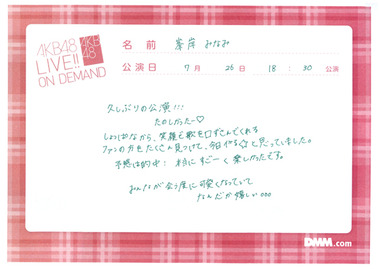 AKB48
LIVE!!
ON DEMAND
AKB
48
名前 峯岸 みなみ
公演日 7月 26日 18:30 公演
久しぶりの公演!!!
たのしかったー♡
しょっぱなから、笑顔と歌を口ずさんでくれる
ファンの方をたくさん見つけて、今日やるぞ☆と思っていました。
予感は的中! 本当にすごーく楽しかったです。
みんなが会う度に可愛くなっていて
なんだか嬉しい。。。
DMM.com